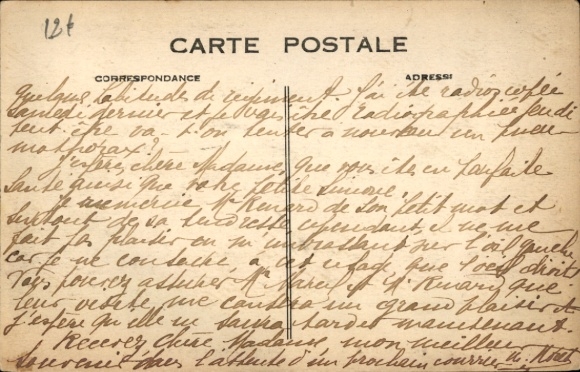 12t
CARTE POSTALE
CORRESPONDANCE
ADRESSE
quelques habitudes du régiment. J'ai été radioscopié
samedi dernier et je vais être radiographié jeudi
peut être va-t-on tenter à nouveau un pneu-
mothorax?
J'espère, chère Madame, que vous êtes en parfaite
santé ainsi que votre petite Simone.
Je remercie Mr Renard de son petit mot et
surtout de sa tendresse cependant, il ne me
fait pas plaisir en m'embrassant sur l'œil gauche
car je ne consacre à cet usage que l'œil droit
Vous pouvez assurer Mr Marcel et Mr Renard que
leur visite me causera un grand plaisir et
j'espère qu'elle ne saura tarder maintenant.
Recevez Chère Madame, mon meilleur
souvenir dans l'attente d'un prochain courrier